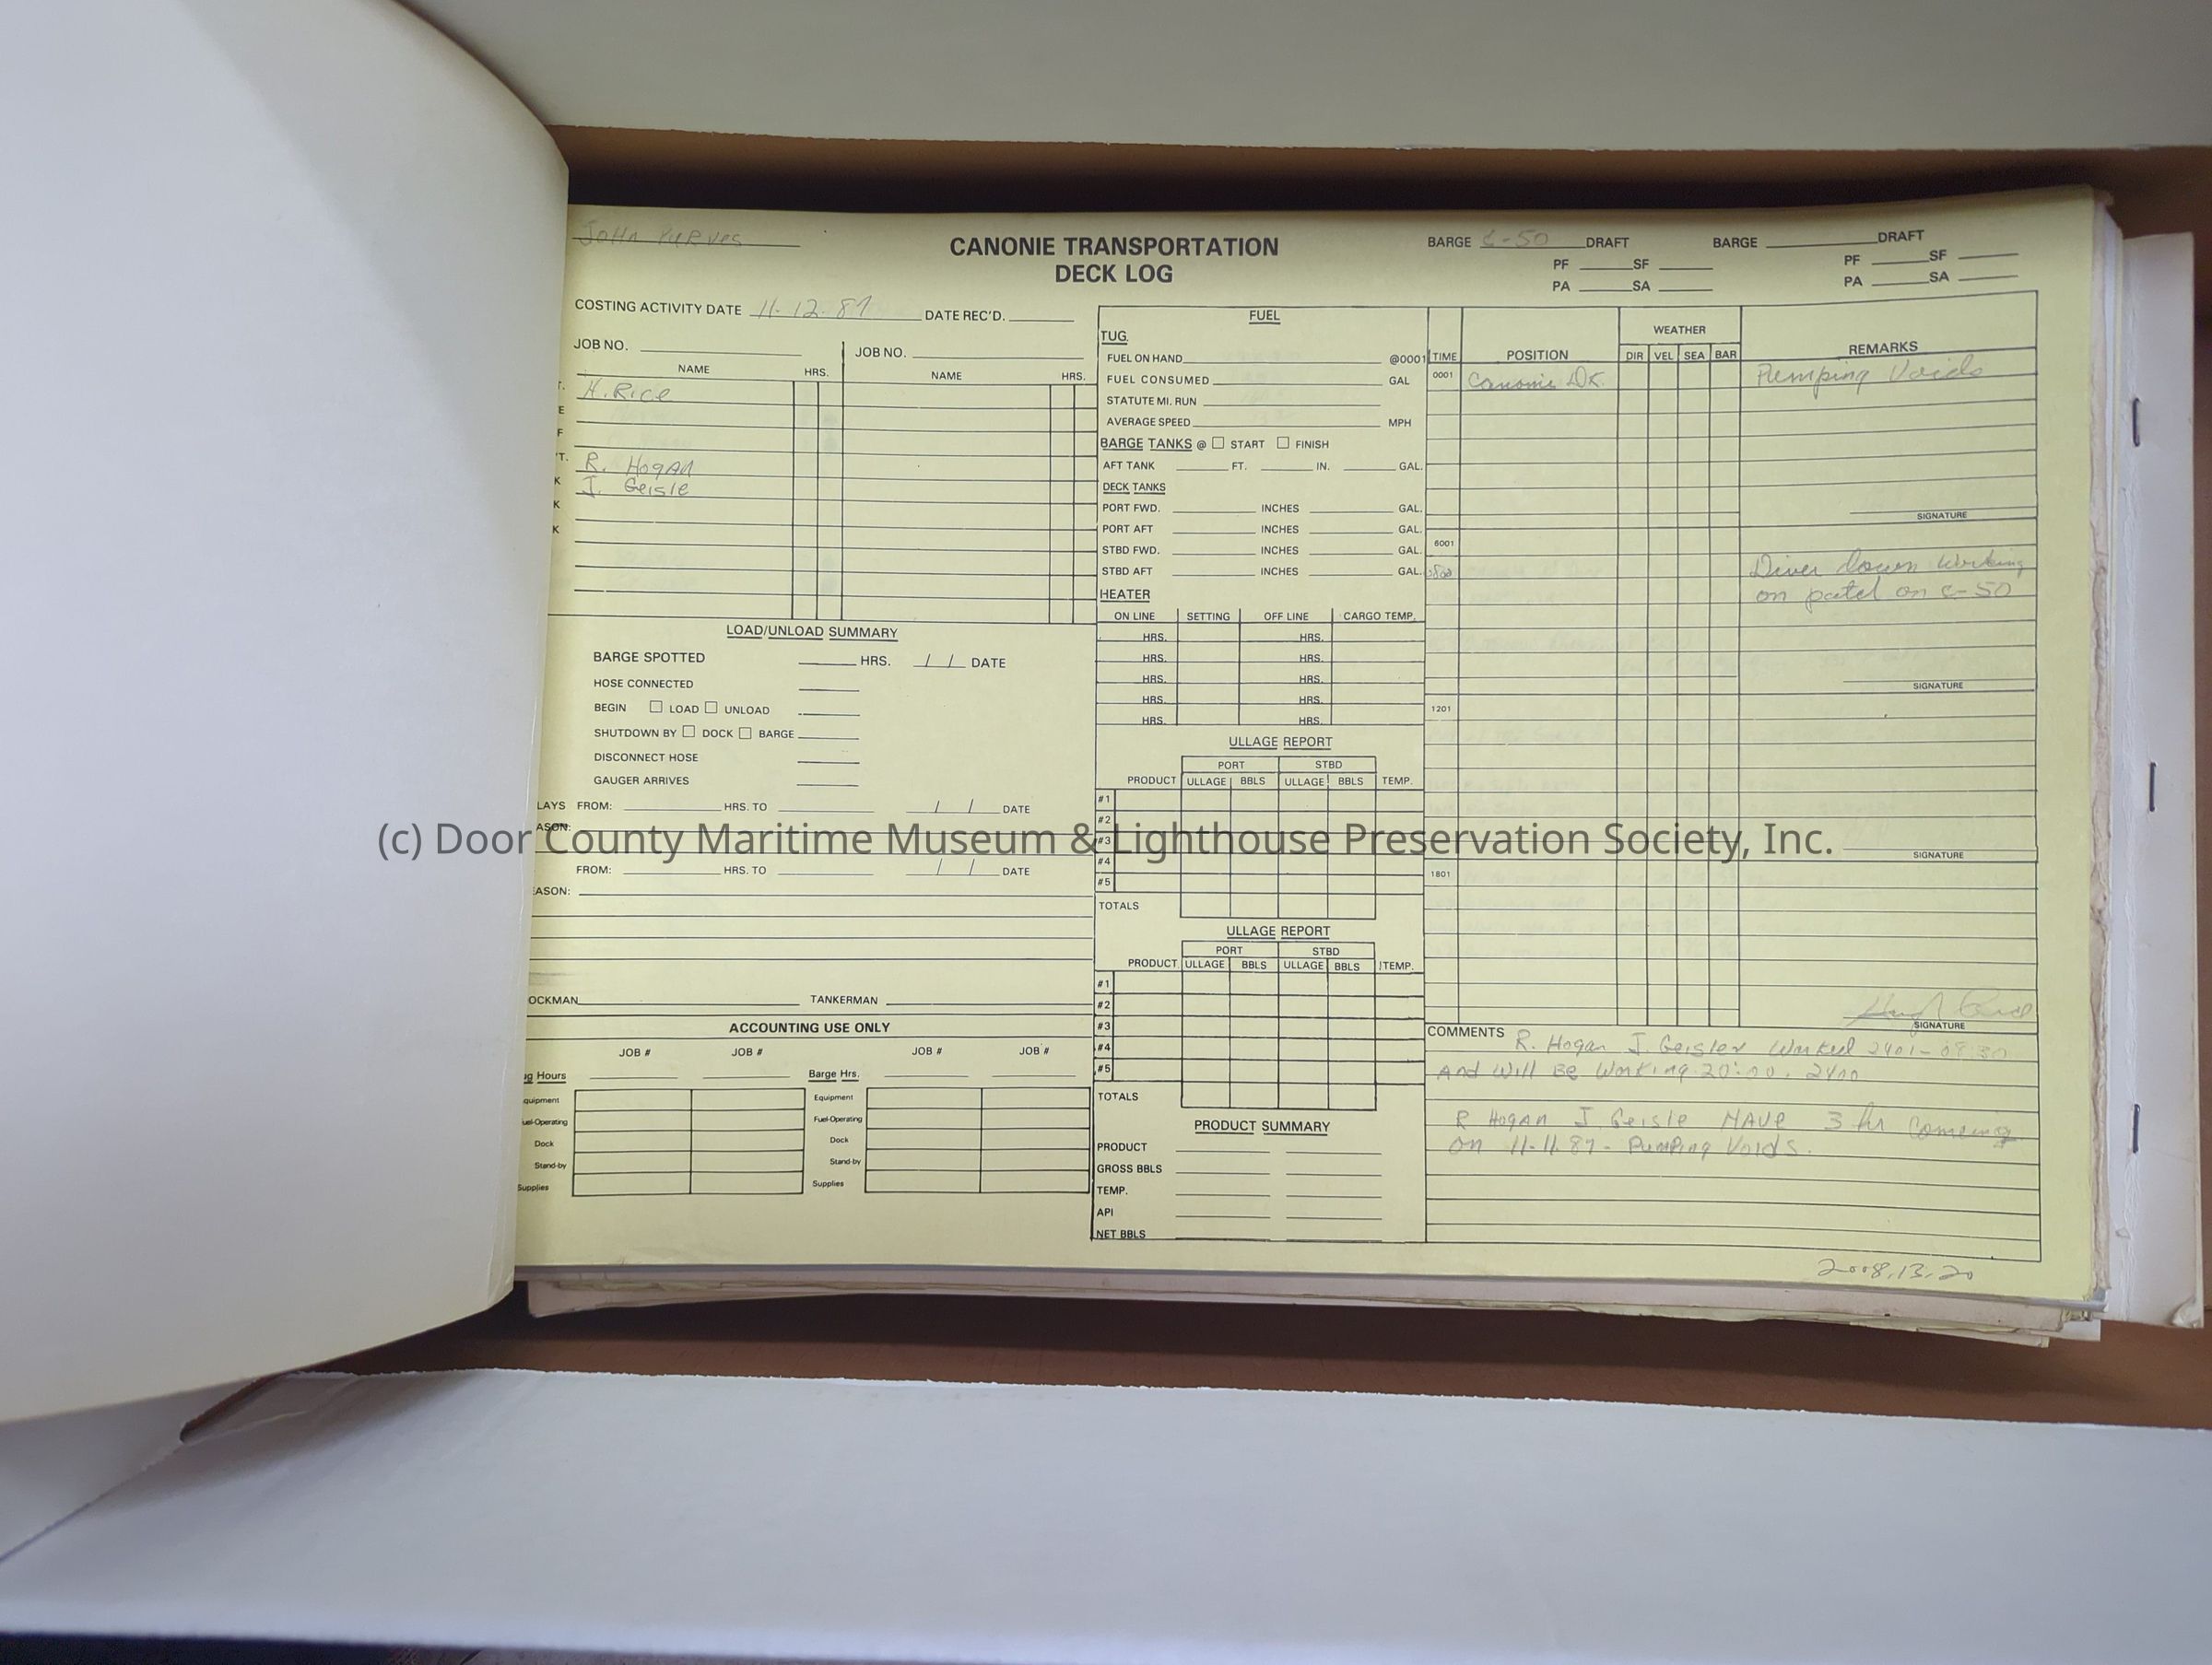 JOHN
CANONIE TRANSPORTATION
DECK LOG
BARGE C-50 DRAFT
PF SF
PA SA
BARGE DRAFT
PF SF
PA SA
COSTING ACTIVITY DATE 11-12-87 DATE REC'D.
JOB NO. JOB NO.
NAME HRS. NAME HRS.
T. H. Rice
E
F
T. R. Hogan
K J. Geisle
K
K
LOAD/UNLOAD SUMMARY
BARGE SPOTTED HRS. / / DATE
HOSE CONNECTED
BEGIN LOAD UNLOAD
SHUTDOWN BY DOCK BARGE
DISCONNECT HOSE
GAUGER ARRIVES
LAYS FROM: HRS. TO / / DATE
ASON:
FROM: HRS. TO / / DATE
EASON:
OCKMAN TANKERMAN
ACCOUNTING USE ONLY
JOB # JOB # JOB # JOB #
ug Hours Barge Hrs.
quipment Equipment
uel-Operating Fuel-Operating
Dock Dock
Stand-by Stand-by
Supplies Supplies
FUEL
TUG
FUEL ON HAND @0001
FUEL CONSUMED GAL
STATUTE MI. RUN
AVERAGE SPEED MPH
BARGE TANKS @ START FINISH
AFT TANK FT. IN. GAL.
DECK TANKS
PORT FWD. INCHES GAL.
PORT AFT INCHES GAL.
STBD FWD. INCHES GAL.
STBD AFT INCHES GAL.
HEATER
ON LINE SETTING OFF LINE CARGO TEMP.
HRS. HRS.
HRS. HRS.
HRS. HRS.
HRS. HRS.
HRS. HRS.
ULLAGE REPORT
PORT STBD
PRODUCT ULLAGE BBLS ULLAGE BBLS TEMP.
#1
#2
#3
#4
#5
TOTALS
ULLAGE REPORT
PORT STBD
PRODUCT ULLAGE BBLS ULLAGE BBLS TEMP.
#1
#2
#3
#4
#5
TOTALS
PRODUCT SUMMARY
PRODUCT
GROSS BBLS
TEMP.
API
NET BBLS
WEATHER
TIME POSITION DIR VEL SEA BAR REMARKS
0001 Canonie DK. Pumping Voids
SIGNATURE
6001
0800 Diver down working
on patch on C-50
SIGNATURE
1201
SIGNATURE
1801
SIGNATURE
COMMENTS R. Hogan J. Geisler Worked 2401-0830
And Will BE Working 20:00. 2400
R Hogan J Geisle HAVE 3 hr Comeing
on 11-11.87 - Pumping Voids.
2008.13.20
(c) Door County Maritime Museum & Lighthouse Preservation Society, Inc.